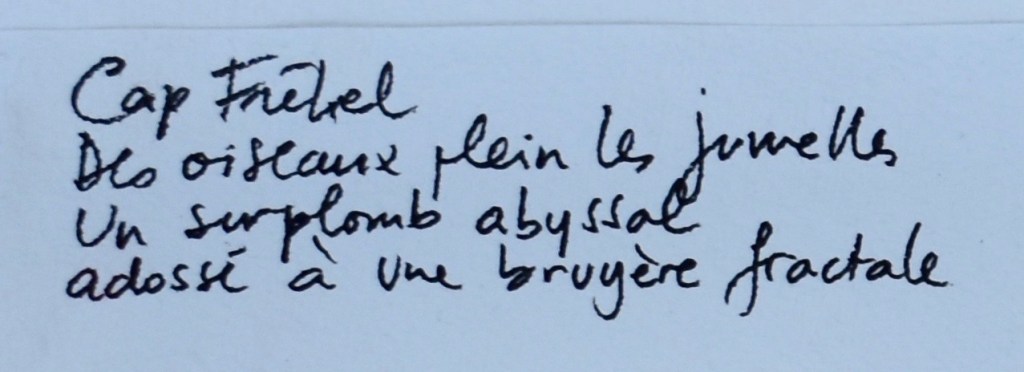 Cap Fréhel
Des oiseaux plein les jumelles
Un surplomb abyssal
adossé à une bruyère fractale